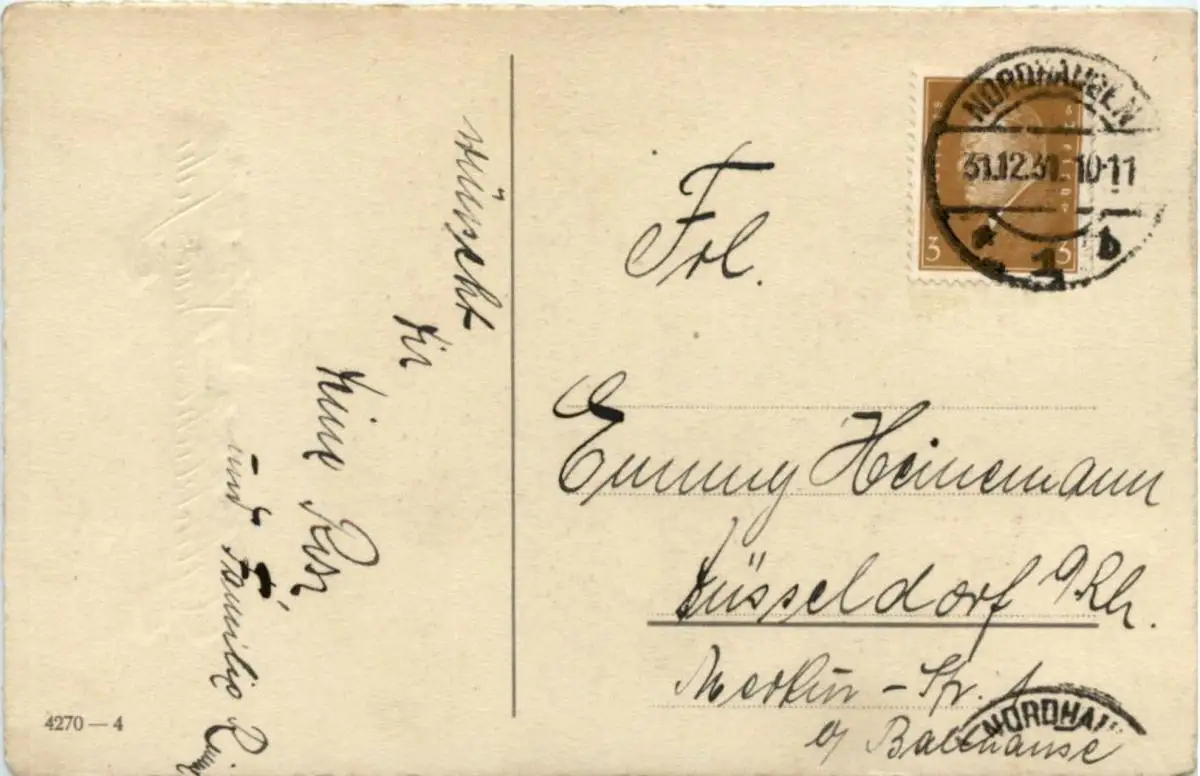 wünscht
Dir
Deine Rosi
und Familie
4270 — 4
NORDHAUSEN
31.12.31. 10-11
* 1 b
3 3
Frl.
Emmy Heinemann
Düsseldorf a/Rh.
Merkur - Str. 1
b/ Balthause
NORDHAU